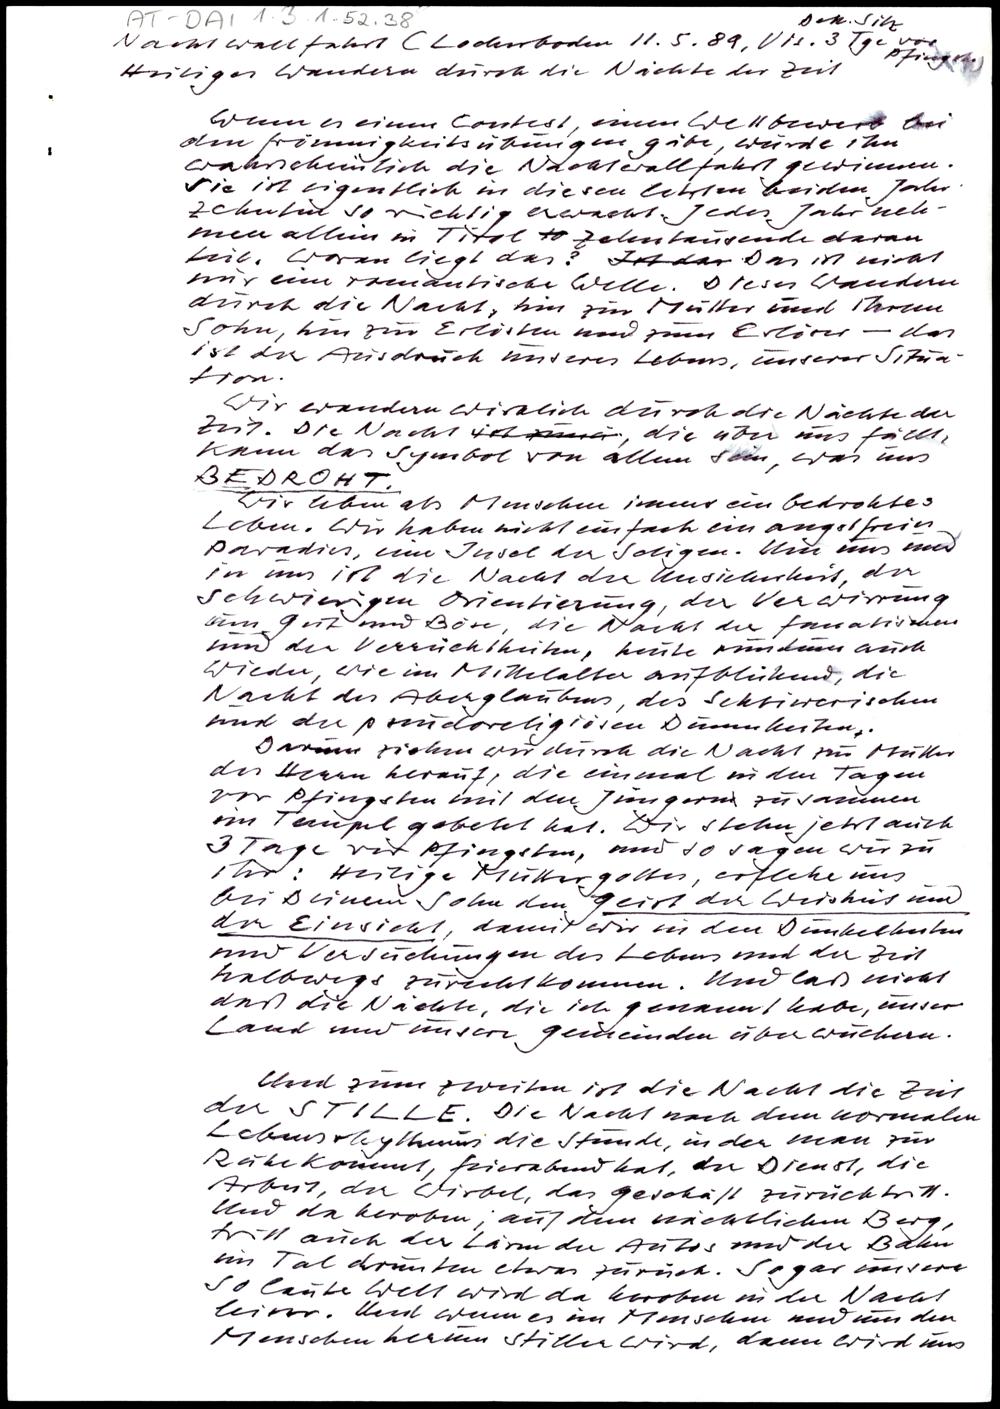 AT-DAI 1.3.1.52.38
Dek. Silz
Nachtwallfahrt (Locherboden 11.5.89, Vis. 3 Tge vor
Pfingsten)
Heiliges Wandern durch die Nächte der Zeit
Wenn es einen Contest, einen Wettbewerb bei
den Frömmigkeitsübungen gäbe, würde ihn
wahrscheinlich die Nachtwallfahrt gewinnen.
Sie ist eigentlich in diesen letzten beiden Jahr-
zehnten so richtig erwacht. Jedes Jahr neh-
men allein in Tirol so Zehntausende daran
teil. Woran liegt das? Ist das Das ist nicht
nur eine romantische Welle. Dieses Wandern
durch die Nacht, hin zur Mutter und ihrem
Sohn, hin zur Erlösten und zum Erlöser – das
ist der Ausdruck unseres Lebens, unserer Situa-
tion.
Wir wandern wirklich durch die Nächte der
Zeit. Die Nacht ist immer, die über uns fällt,
kann das Symbol von allem sein, was uns
BEDROHT.
Wir leben als Menschen immer ein bedrohtes
Leben. Wir haben nicht einfach ein angstfreies
Paradies, eine Insel der Seligen. Um uns und
in uns ist die Nacht der Unsicherheit, der
schwierigen Orientierung, der Verwirrung
um Gut und Böse, die Nacht der Fanatismen
und der Verrücktheiten, heute rundum auch
wieder, wie im Mittelalter aufblühend, die
Nacht des Aberglaubens, des Sektiererischen
und der pseudoreligiösen Dummheiten.
Darum ziehen wir durch die Nacht zur Mutter
des Herrn herauf, die einmal in den Tagen
vor Pfingsten mit den Jüngern zusammen
im Tempel gebetet hat. Wir stehn jetzt auch
3 Tage vor Pfingsten, und so sagen wir zu
ihr: Heilige Muttergottes, erflehe uns
bei Deinem Sohn den Geist der Weisheit und
der Einsicht, damit wir in den Dunkelheiten
und Versuchungen des Lebens und der Zeit
halbwegs zurechtkommen. Und laß nicht
daß die Nächte, die ich genannt habe, unser
Land und unsere Gemeinden überwuchern.
Und zum zweiten ist die Nacht die Zeit
der STILLE. Die Nacht nach dem normalen
Lebensrhythmus die Stunde, in der man zur
Ruhe kommt, Feierabend hat, der Dienst, die
Arbeit, der Wirbel, das Geschäft zurücktritt.
Und da heroben, auf dem nächtlichen Berg,
tritt auch der Lärm der Autos und der Bahn
im Tal drunten etwas zurück. Sogar unsere
so laute Welt wird da heroben in der Nacht
leiser. Und wenn es im Menschen und um den
Menschen herum stiller wird, dann wird uns